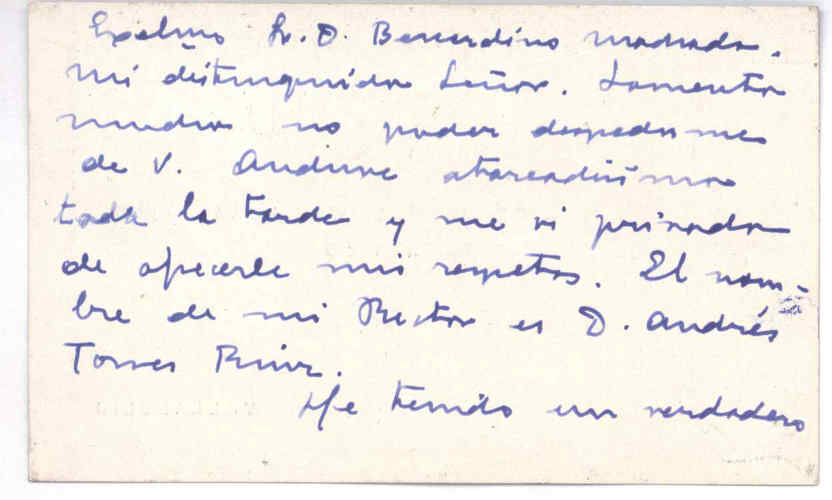 Exclmo Sr. D. Bernardino Machado.
Mi distinguido Señor. Lamento
mucho no poder despedirme
de V. Anduve atareadísimo
toda la tarde y me vi privado
de ofrecerle mis respetos. El nom-
bre de mi Rector es D. Andrés
Torres Ruiz.
He tenido un verdadero